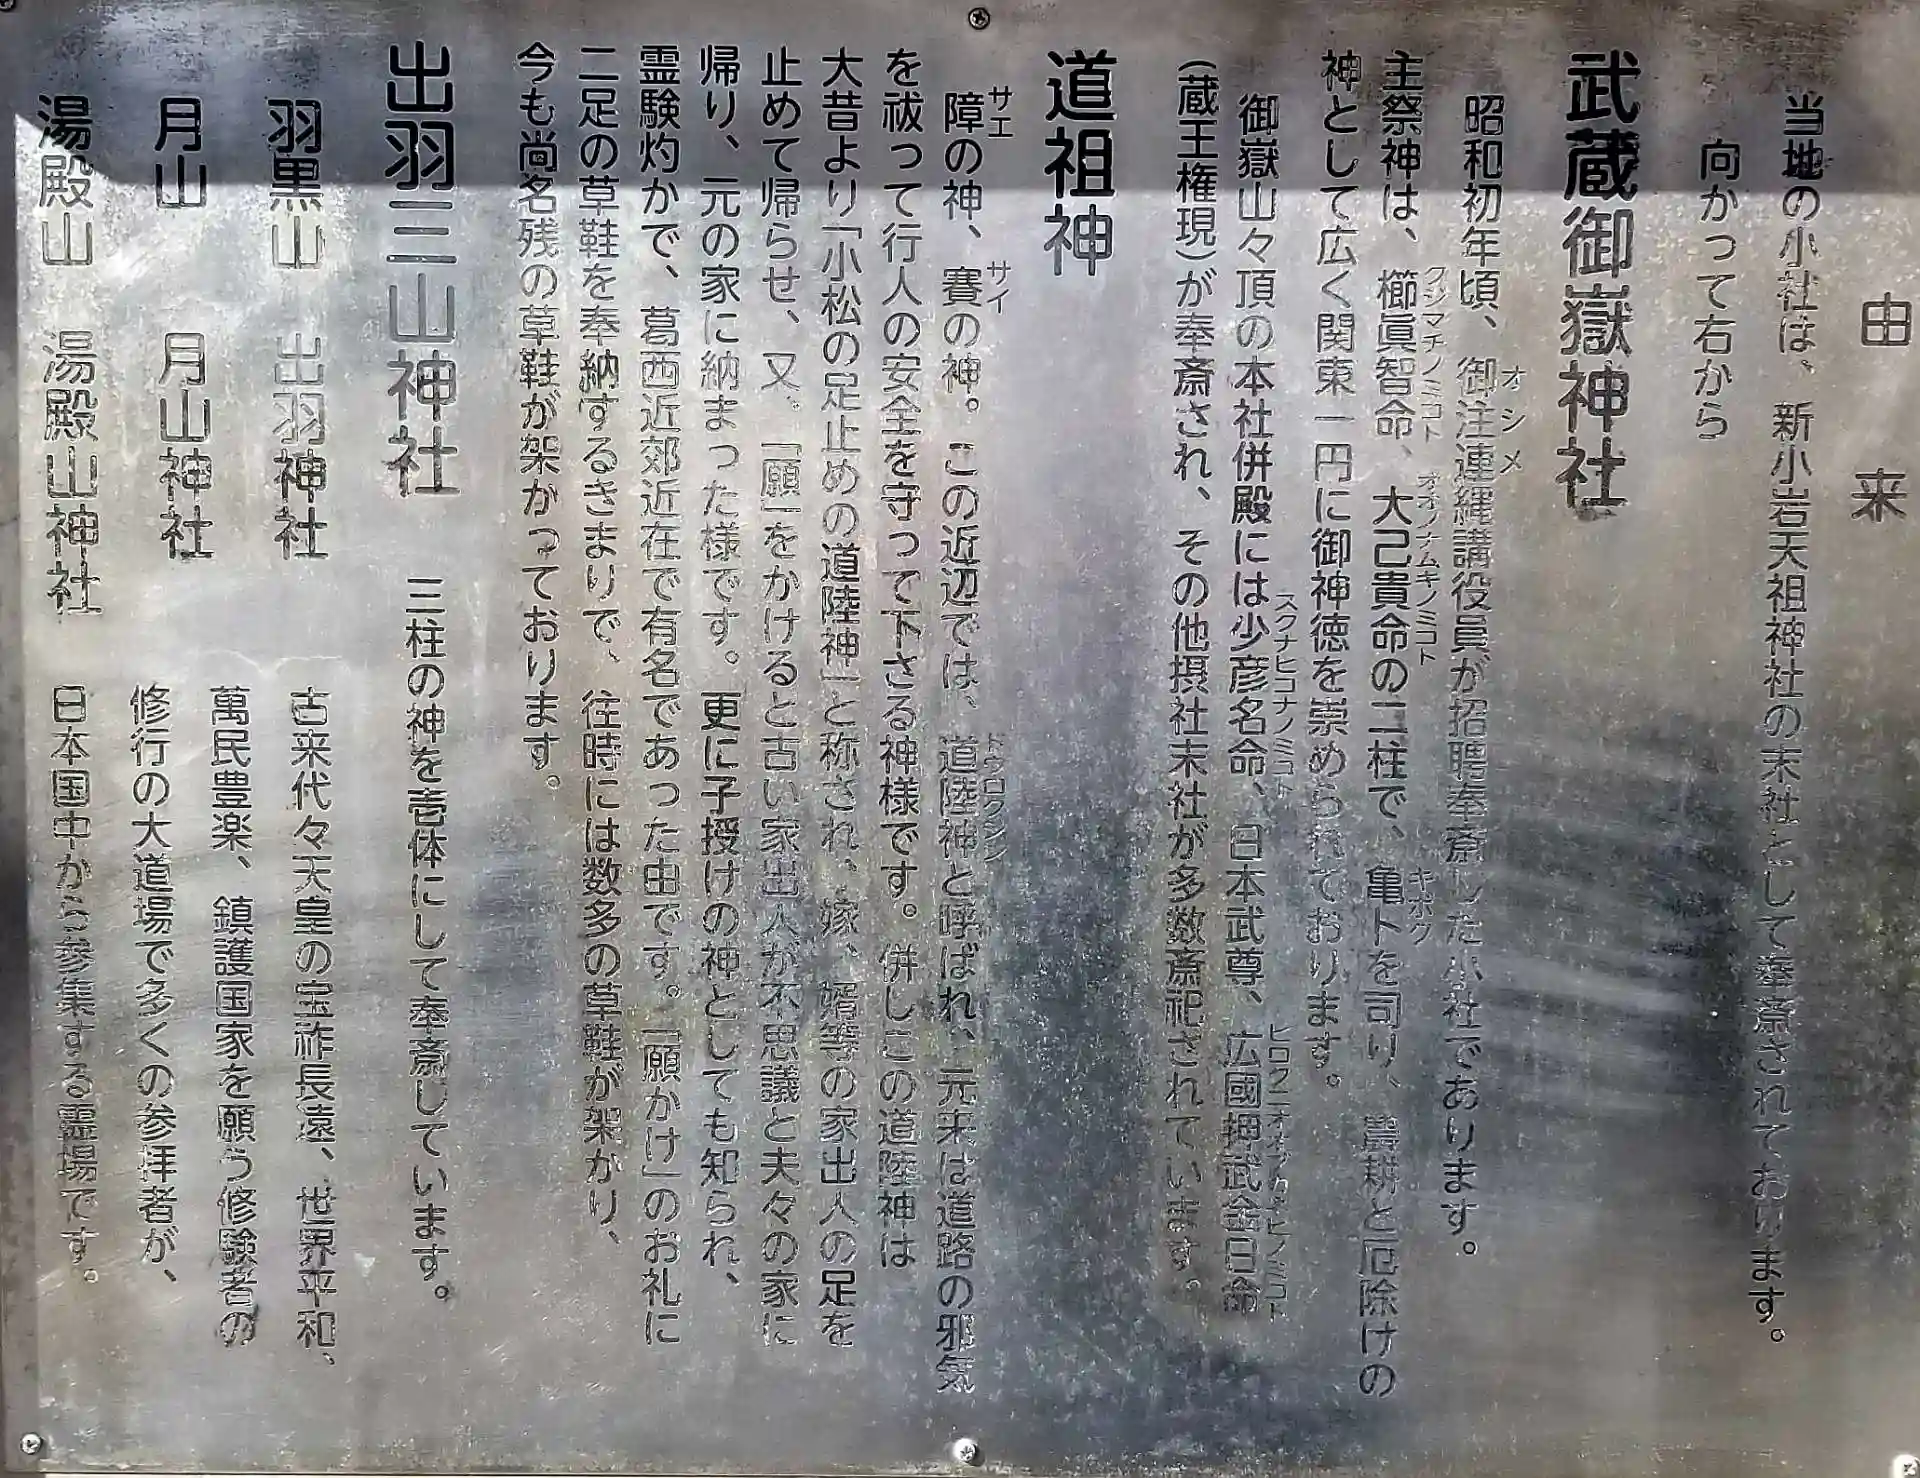 由来
当地の小社は、新小岩天祖神社の末社として奉斎されております。
向かって右から
武蔵御嶽神社
昭和初年頃、御注連縄講役員が招聘奉斎した小社であります。
オシメ
主祭神は、櫛眞智命、大己貴命の二柱で、亀卜を司り、農耕と厄除けの
クシマチノミコト オオナムキノミコト キボク
神として広く関東一円に御神徳を崇められております。
御嶽山々頂の本社併殿には少彦名命、日本武尊、広國押武金日命
スクナヒコナノミコト
(蔵王権現)が奉斎され、その他摂社末社が多数斎祀されています。
道祖神
障の神、賽の神。この近辺では、道陸神と呼ばれ、元来は道路の邪気
サエ サイ ドウロクシン
を祓って行人の安全を守って下さる神様です。併しこの道陸神は
大昔より「小松の足止めの道陸神」と称され、嫁、婿等の家出人の足を
止めて帰らせ、又、「願」をかけると古い家出人が不思議と夫々の家に
帰り、元の家に納まった様です。更に子授けの神としても知られ、
霊験灼かで、葛西近郊近在で有名であった由です。「願かけ」のお礼に
二足の草鞋を奉納するきまりで、往時には数多の草鞋が架かり、
今も尚名残の草鞋が架かっております。
出羽三山神社 三柱の神を壱体にして奉斎しています。
羽黒山 出羽神社 古来代々天皇の宝祚長遠、世界平和、
萬民豊楽、鎮護国家を願う修験者の
月山 月山神社 修行の大道場で多くの参拝者が、
湯殿山 湯殿山神社 日本国中から参集する霊場です。